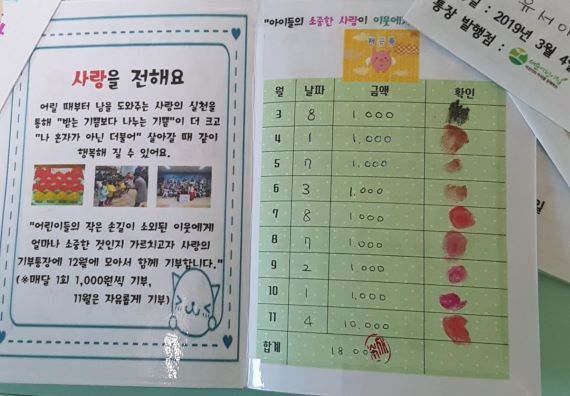 사랑을 전해요
어릴 때부터 남을 도와주는 사랑의 실천을
통해 "받는 기쁨보다 나누는 기쁨"이 더 크고
"나 혼자가 아닌 더불어" 살아갈 때 같이
행복해 질 수 있어요.
"어린이들의 작은 손길이 소외된 이웃에게
얼마나 소중한 것인지 가르치고자 사랑의
기부통장에 12월에 모아서 함께 기부합니다."
(※매달 1회 1,000원씩 기부,
11월은 자유롭게 기부)
"아이들의 소중한 사랑이 이웃에게
저금통
월 날짜 금액 확인
3 8 1,000
4 1 1,000
5 7 1,000
6 3 1,000
7 8 1,000
8 7 1,000
9 2 1,000
10 1 1,000
11 4 10,000
합계 18,000
유서
일 : 2019년 3월 4
통장 발행점 :
일